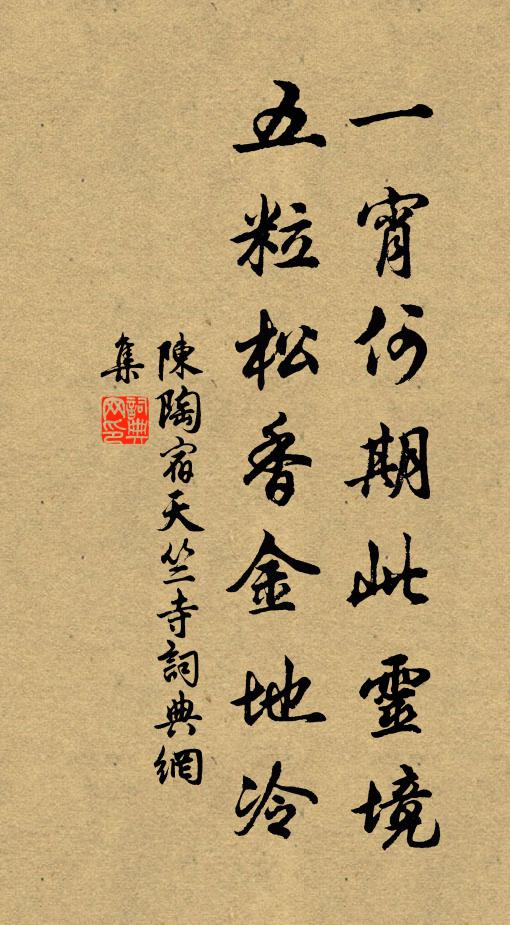 一宵何期此靈境
五粒松香金地冷
陳陶宿天竺寺詞典網
集
詞典
网印